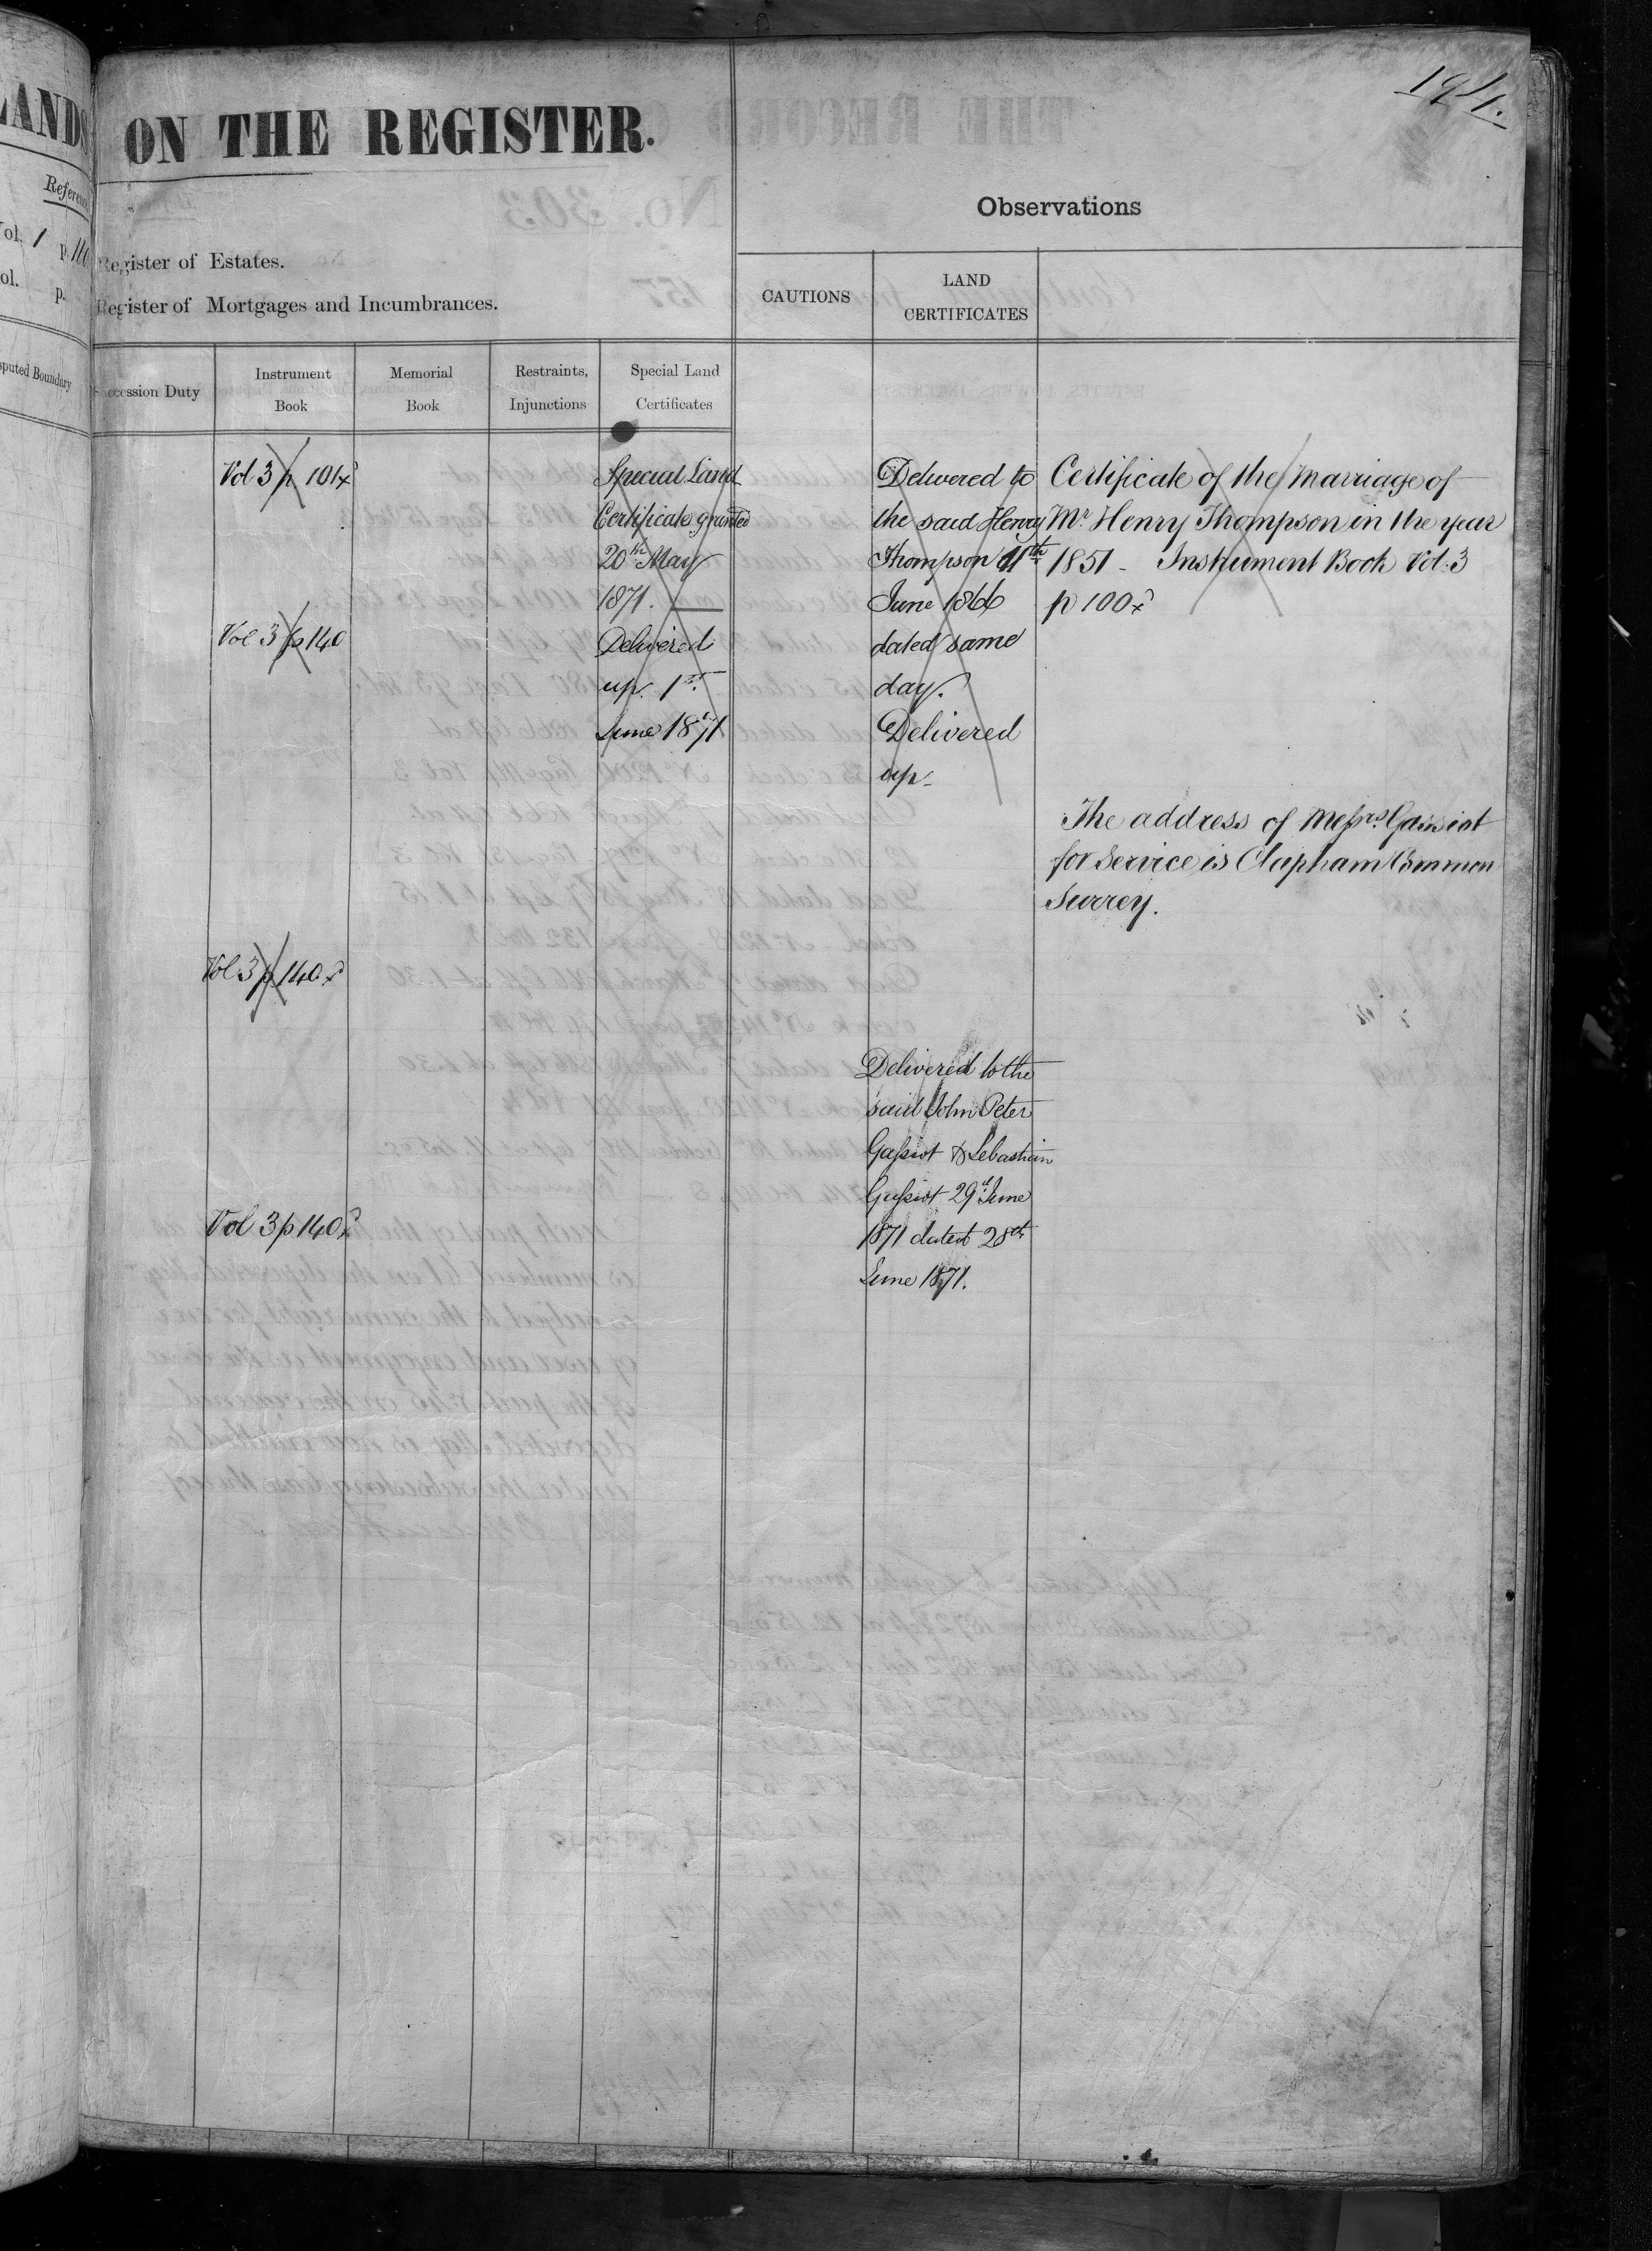 LANDS
Vol. 1 p. 140
Vol. p.
ON THE REGISTER.
Register of Estates.
Register of Mortgages and Incumbrances.
Observations
CAUTIONS
LAND
CERTIFICATES
Succession Duty
Instrument
Book
Memorial
Book
Restraints,
Injunctions
Special Land
Certificates
Vol 3 p 101
Vol 3 p 140
Vol 3 p 140
Vol 3 p 140
Special Land
Certificate granted
20th May
1871.
Delivered
up. 1st
June 1871
Delivered to
the said Henry
Thompson 11th
June 1866
dated same
day.
Delivered
up
Delivered to the
said John Peter
Gaſsiot & Sebastian
Gaſsiot 29th June
1871 dated 28th
June 1871.
Certificate of the Marriage of
Mr Henry Thompson in the year
1851 - Instrument Book Vol. 3
p 100
The address of Meſsrs Gassiot
for Service is Clapham Common
Surrey.